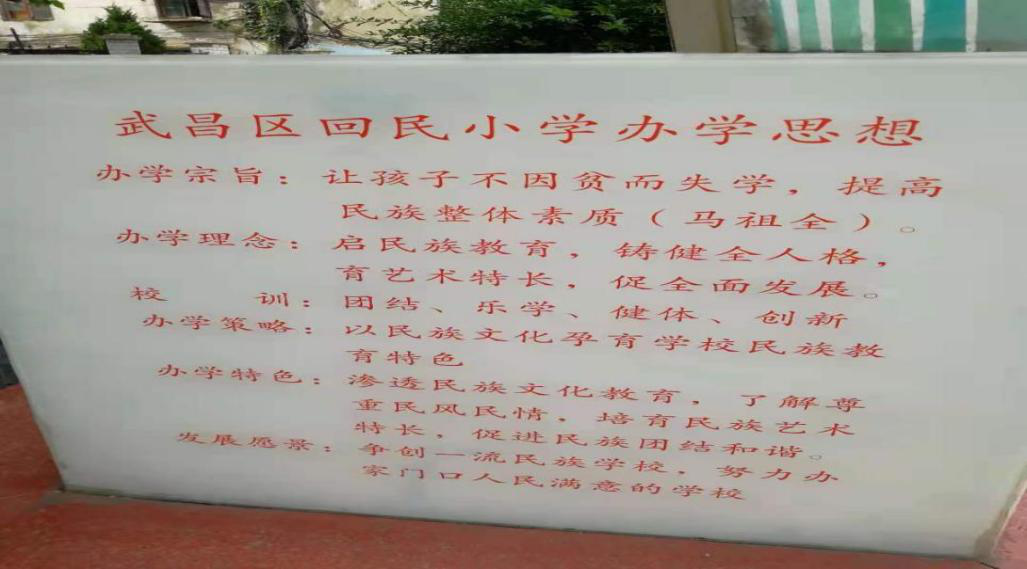 武昌区回民小学办学思想
办学宗旨：让孩子不因贫而失学，提高
民族整体素质（马祖全）。
办学理念：启民族教育，铸健全人格，
育艺术特长，促全面发展。
校　　训：团结、乐学、健体、创新
办学策略：以民族文化孕育学校民族教
育特色
办学特色：渗透民族文化教育，了解尊
重民风民情，培育民族艺术
特长，促进民族团结和谐。
发展愿景：争创一流民族学校，努力办
家门口人民满意的学校